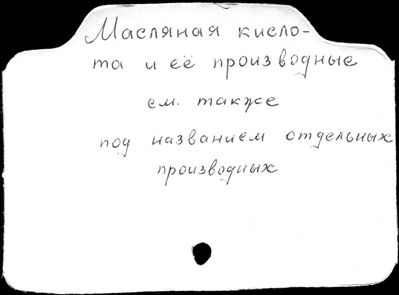 Масляная кисло-
та и её производные
см. также
под названием отдельных
производных